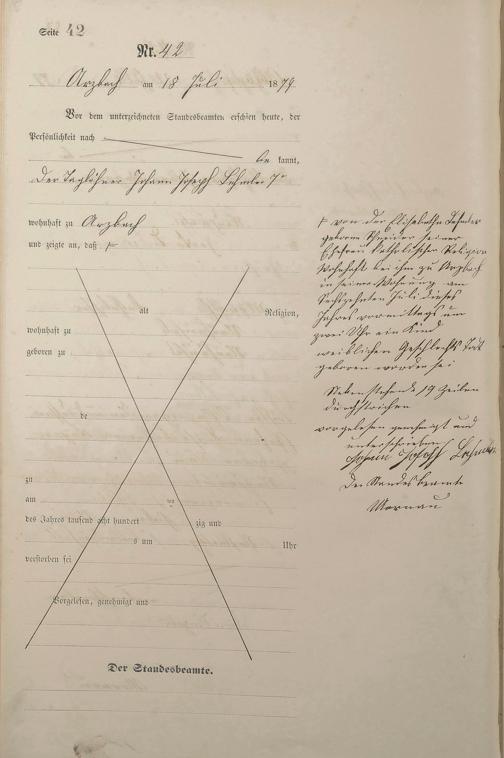 Seite 42
Nr. 42
Arzbach am 18 Juli 1879
Vor dem unterzeichneten Standesbeamten erschien heute, der
Persönlichkeit nach
be kannt,
der Taglöhner Johann Joseph
wohnhaft zu Arzbach
und zeigte an, daß
alt Religion,
wohnhaft zu
geboren zu
de
zu
am wo
des Jahres tausend acht hundert zig und
s um Uhr
verstorben sei
Vorgelesen, genehmigt und
Der Standesbeamte.
von der Elisabetha
geborene Schneider seiner
Ehefrau katholischer Religion
Wohnhaft bei ihm zu Arzbach
in seiner Wohnung am
Sechszehnten Juli dieses
Jahres vormittags um
zwei Uhr ein Kind
weiblichen Geschlechts todt
geboren worden sei
Nebenstehende 19 Zeilen
durchstrichen
vorgelesen genehmigt und
unterschrieben
Johann Joseph
Der Standesbeamte